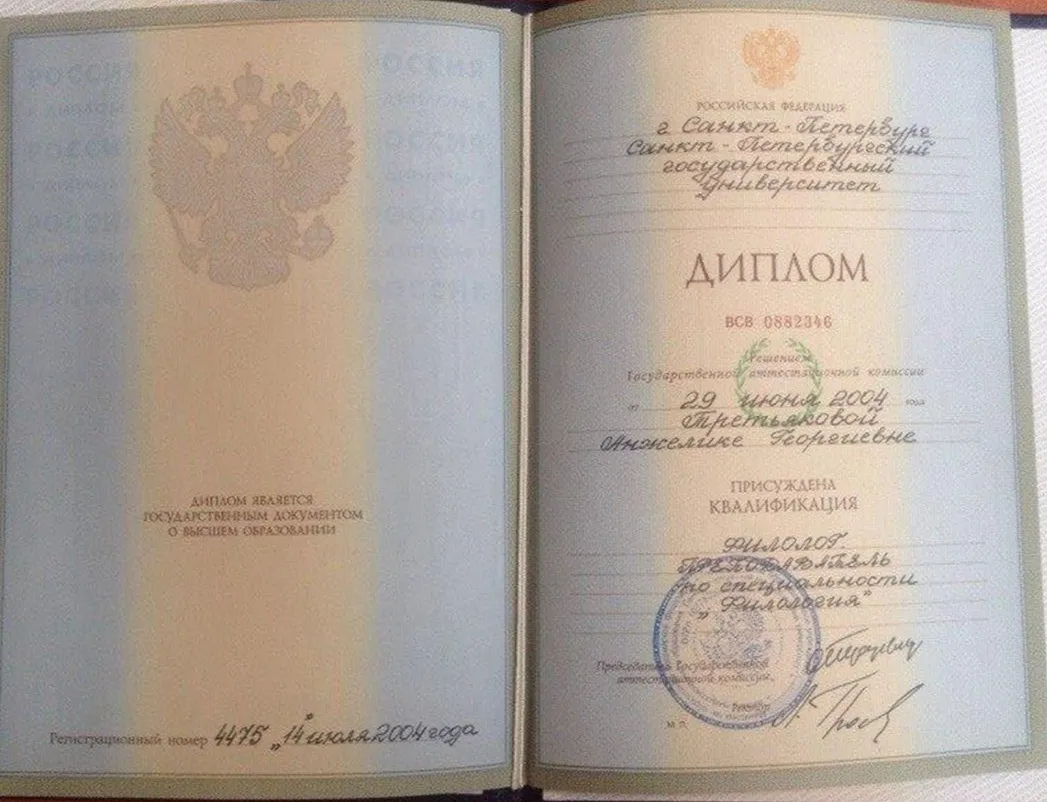 РОССИЯ РОССИЯ
РОССИЯ РОССИЯ
РОССИЯ РОССИЯ
РОССИЯ РОССИЯ
ДИПЛОМ ЯВЛЯЕТСЯ
ГОСУДАРСТВЕННЫМ ДОКУМЕНТОМ
О ВЫСШЕМ ОБРАЗОВАНИИ
Регистрационный номер 4475 „14" июля 2004 года
РОССИЙСКАЯ ФЕДЕРАЦИЯ
г Санкт-Петербург
Санкт-Петербургский
государственный
университет
ДИПЛОМ
ВСВ 0882346
Решением
Государственной аттестационной комиссии
от 29 июня 2004 года
Третьяковой
Анжелике Георгиевне
ПРИСУЖДЕНА
КВАЛИФИКАЦИЯ
ФИЛОЛОГ.
ПРЕПОДАВАТЕЛЬ
по специальности
„Филология"
Председатель Государственной
аттестационной комиссии
Ректор
М.П.